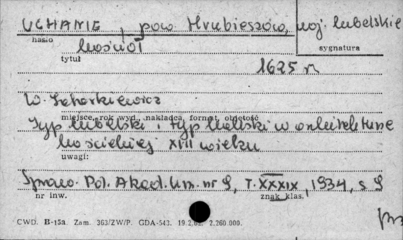 UCHANIE, pow. Hrubieszów, woj. lubelskie
hasło
kościół
sygnatura
tytuł
1625 r.
W.
miejsce, rok wyd., nakładca, format, objętość
Typ lubelski i typ kaliski w architekturze
kościelnej XVII wieku
uwagi:
Spraw. Pol. Akad. Um. nr 9, T. XXXIX, 1934, s 9
nr inw.
znak klas.
CWD. B-15a. Zam. 363/ZW/P. GDA-543. 2.260.000.